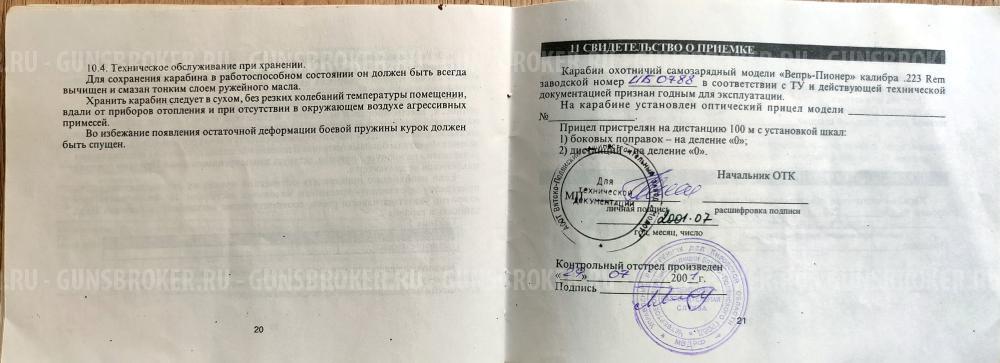 10.4. Техническое обслуживание при хранении.
Для сохранения карабина в работоспособном состоянии он должен быть всегда
вычищен и смазан тонким слоем ружейного масла.
Хранить карабин следует в сухом, без резких колебаний температуры помещении,
вдали от приборов отопления и при отсутствии в окружающем воздухе агрессивных
примесей.
Во избежание появления остаточной деформации боевой пружины курок должен
быть спущен.
20
11 СВИДЕТЕЛЬСТВО О ПРИЕМКЕ
Карабин охотничий самозарядный модели «Вепрь-Пионер» калибра .223 Rem
заводской номер ИВ0788 в соответствии с ТУ и действующей технической
документацией признан годным для эксплуатации.
На карабине установлен оптический прицел модели
№
Прицел пристрелян на дистанцию 100 м с установкой шкал:
1) боковых поправок – на деление «0»;
2) дистанций – на деление «0».
Начальник ОТК
Для
технической
документации
МП
личная подпись расшифровка подписи
2001.07
год, месяц, число
Контрольный отстрел произведен
«29» 07 2001 г.
Подпись
21
GUNSBROKER.RU - GUNSBROKER.RU